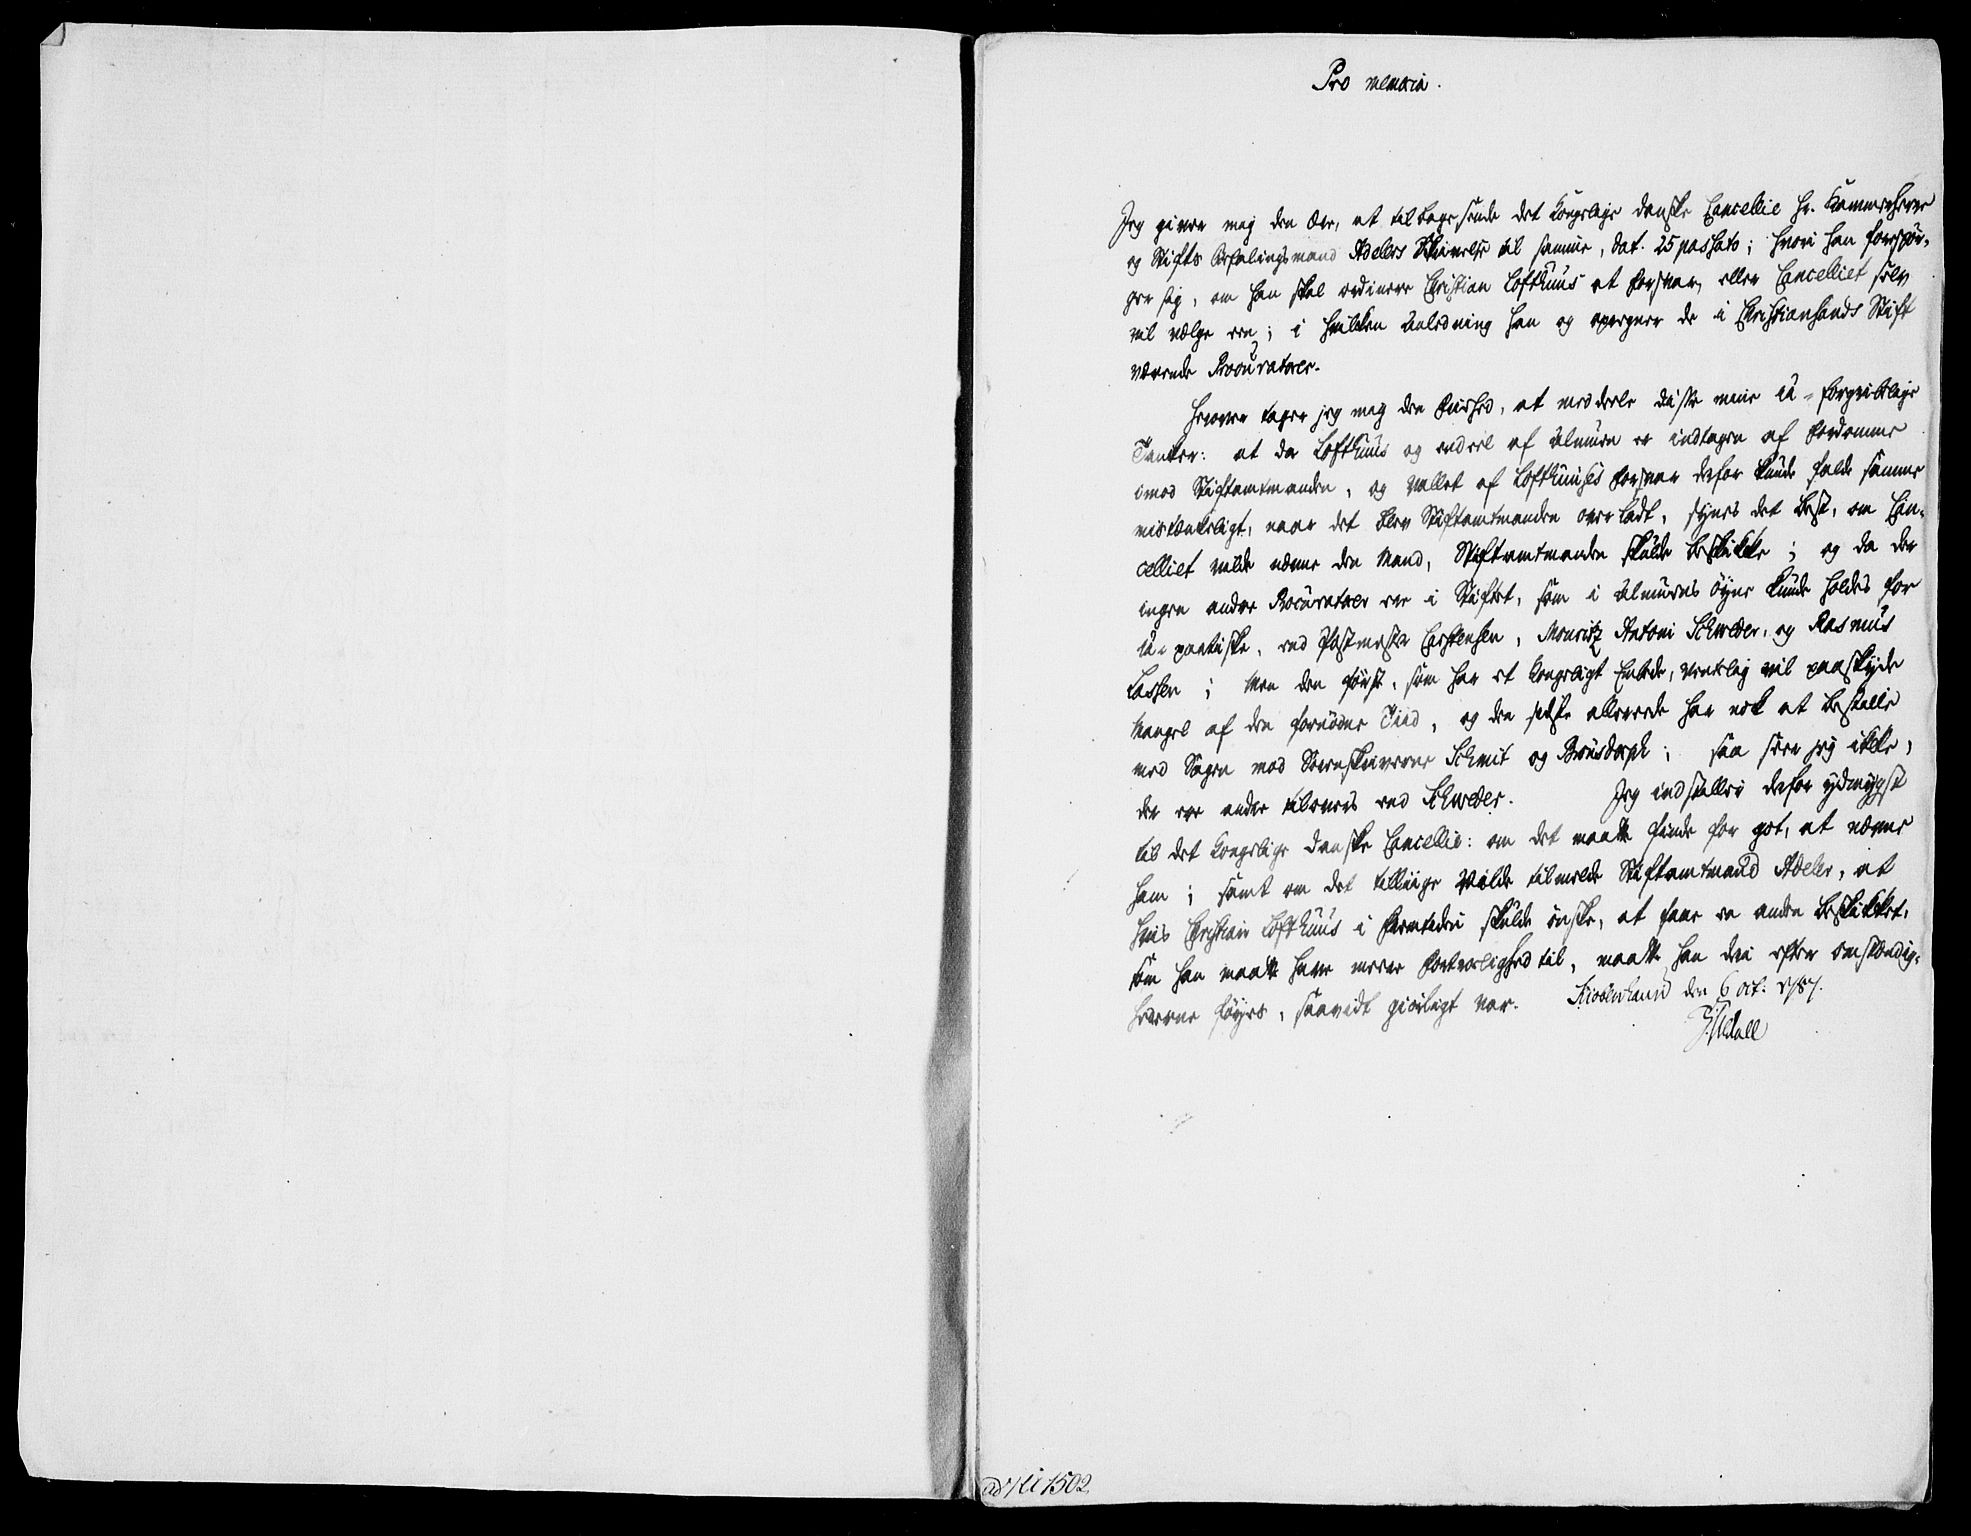 Pro memoria.
Jeg giver mig den Ære, at tilbagesende det Kongelige danske Cancellie Hr. Kammerherre
og Stifts Befalingsmand Adelers Skrivelse til samme, dat. 25 passato; hvori han forespør-
ger sig, om han skal ordinere Christian Lofthuus et Forsvar, eller Cancelliet selv
vil vælge een; i hvilken Anledning han og opregner de i Christiansands Stift
værende Procuratorer.
Herover tager jeg mig den Friehed, at meddeele disse mine uu-forgribelige
Tanker: at da Lofthuus og endeel af Almuen er indtagen af Fordomme
imod Stiftamtmanden, og Vallet af Lofthuuses Forsvar derfor kunde falde samme
mistænkeligt, naar det blev Stiftamtmanden overladt, synes det best, om Can-
celliet vilde nævne den Mand, Stiftamtmanden skulde beskikke; og da der
ingen andre Procuratorer ere i Stiftet, som i Almuens Øyne kunde holdes for
uu-partiske, end Postmester Carstensen, Mouritz Antoni Schweder, og Rasmus
Lassen; Men den første, som har et Kongeligt Embede, ventelig vil paaskyde
Mangel af den fornødne Tiid, og den sidste allereede har nok at bestille
med Sagen mod Sorenskriverne Schmit og Brønsdorph; saa seer jeg ikke,
der ere andre tilovers end Schweder. Jeg indstiller derfor ydmygst
til det Kongelige danske Cancellie: om det maatte finde for got, at nævne
ham; samt om det tilliige vilde tilmelde Stiftamtmand Adeler, at
hvis Christian Lofthuus i Fremtiden skulde ønske, at faae en anden beskikket,
som han maatte have meere Fortroelighed til, maatte han deri efter Omstændig-
hederne føyes, saavidt giørligt var. Kiøbenhavn den 6 Oct. 1787.
Uldall
ad N 1502